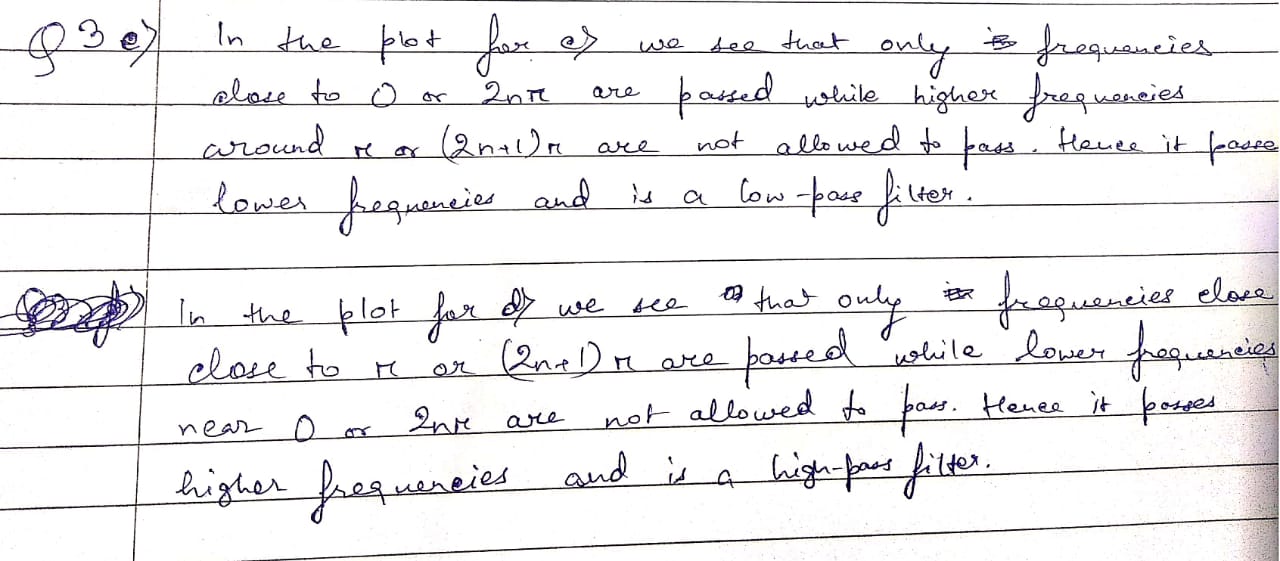 Q3 e) In the plot for c) we see that only frequencies
close to 0 or 2nπ are passed while higher frequencies
around π or (2n+1)π are not allowed to pass. Hence it passe
lower frequencies and is a low-pass filter.
In the plot for d) we see that only frequencies close
close to π or (2n+1)π are passed while lower frequencies
near 0 or 2nπ are not allowed to pass. Hence it passes
higher frequencies and is a high-pass filter.